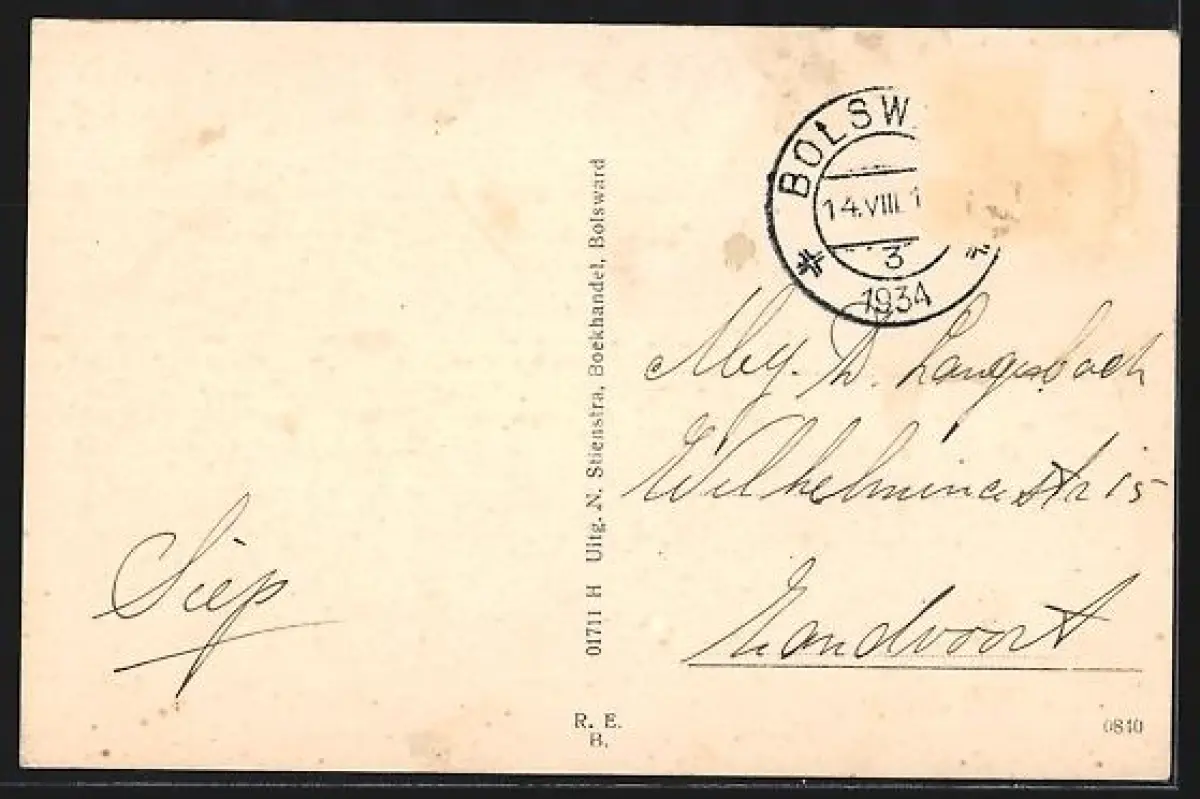 BOLSW
14.VIII. 1
3
1934
Siep
01711 H Uitg. N. Stienstra, Boekhandel, Bolsward
Mej. D. Langesbach
Wilhelminastr 15
Zandvoort
R. E.
B.
0840